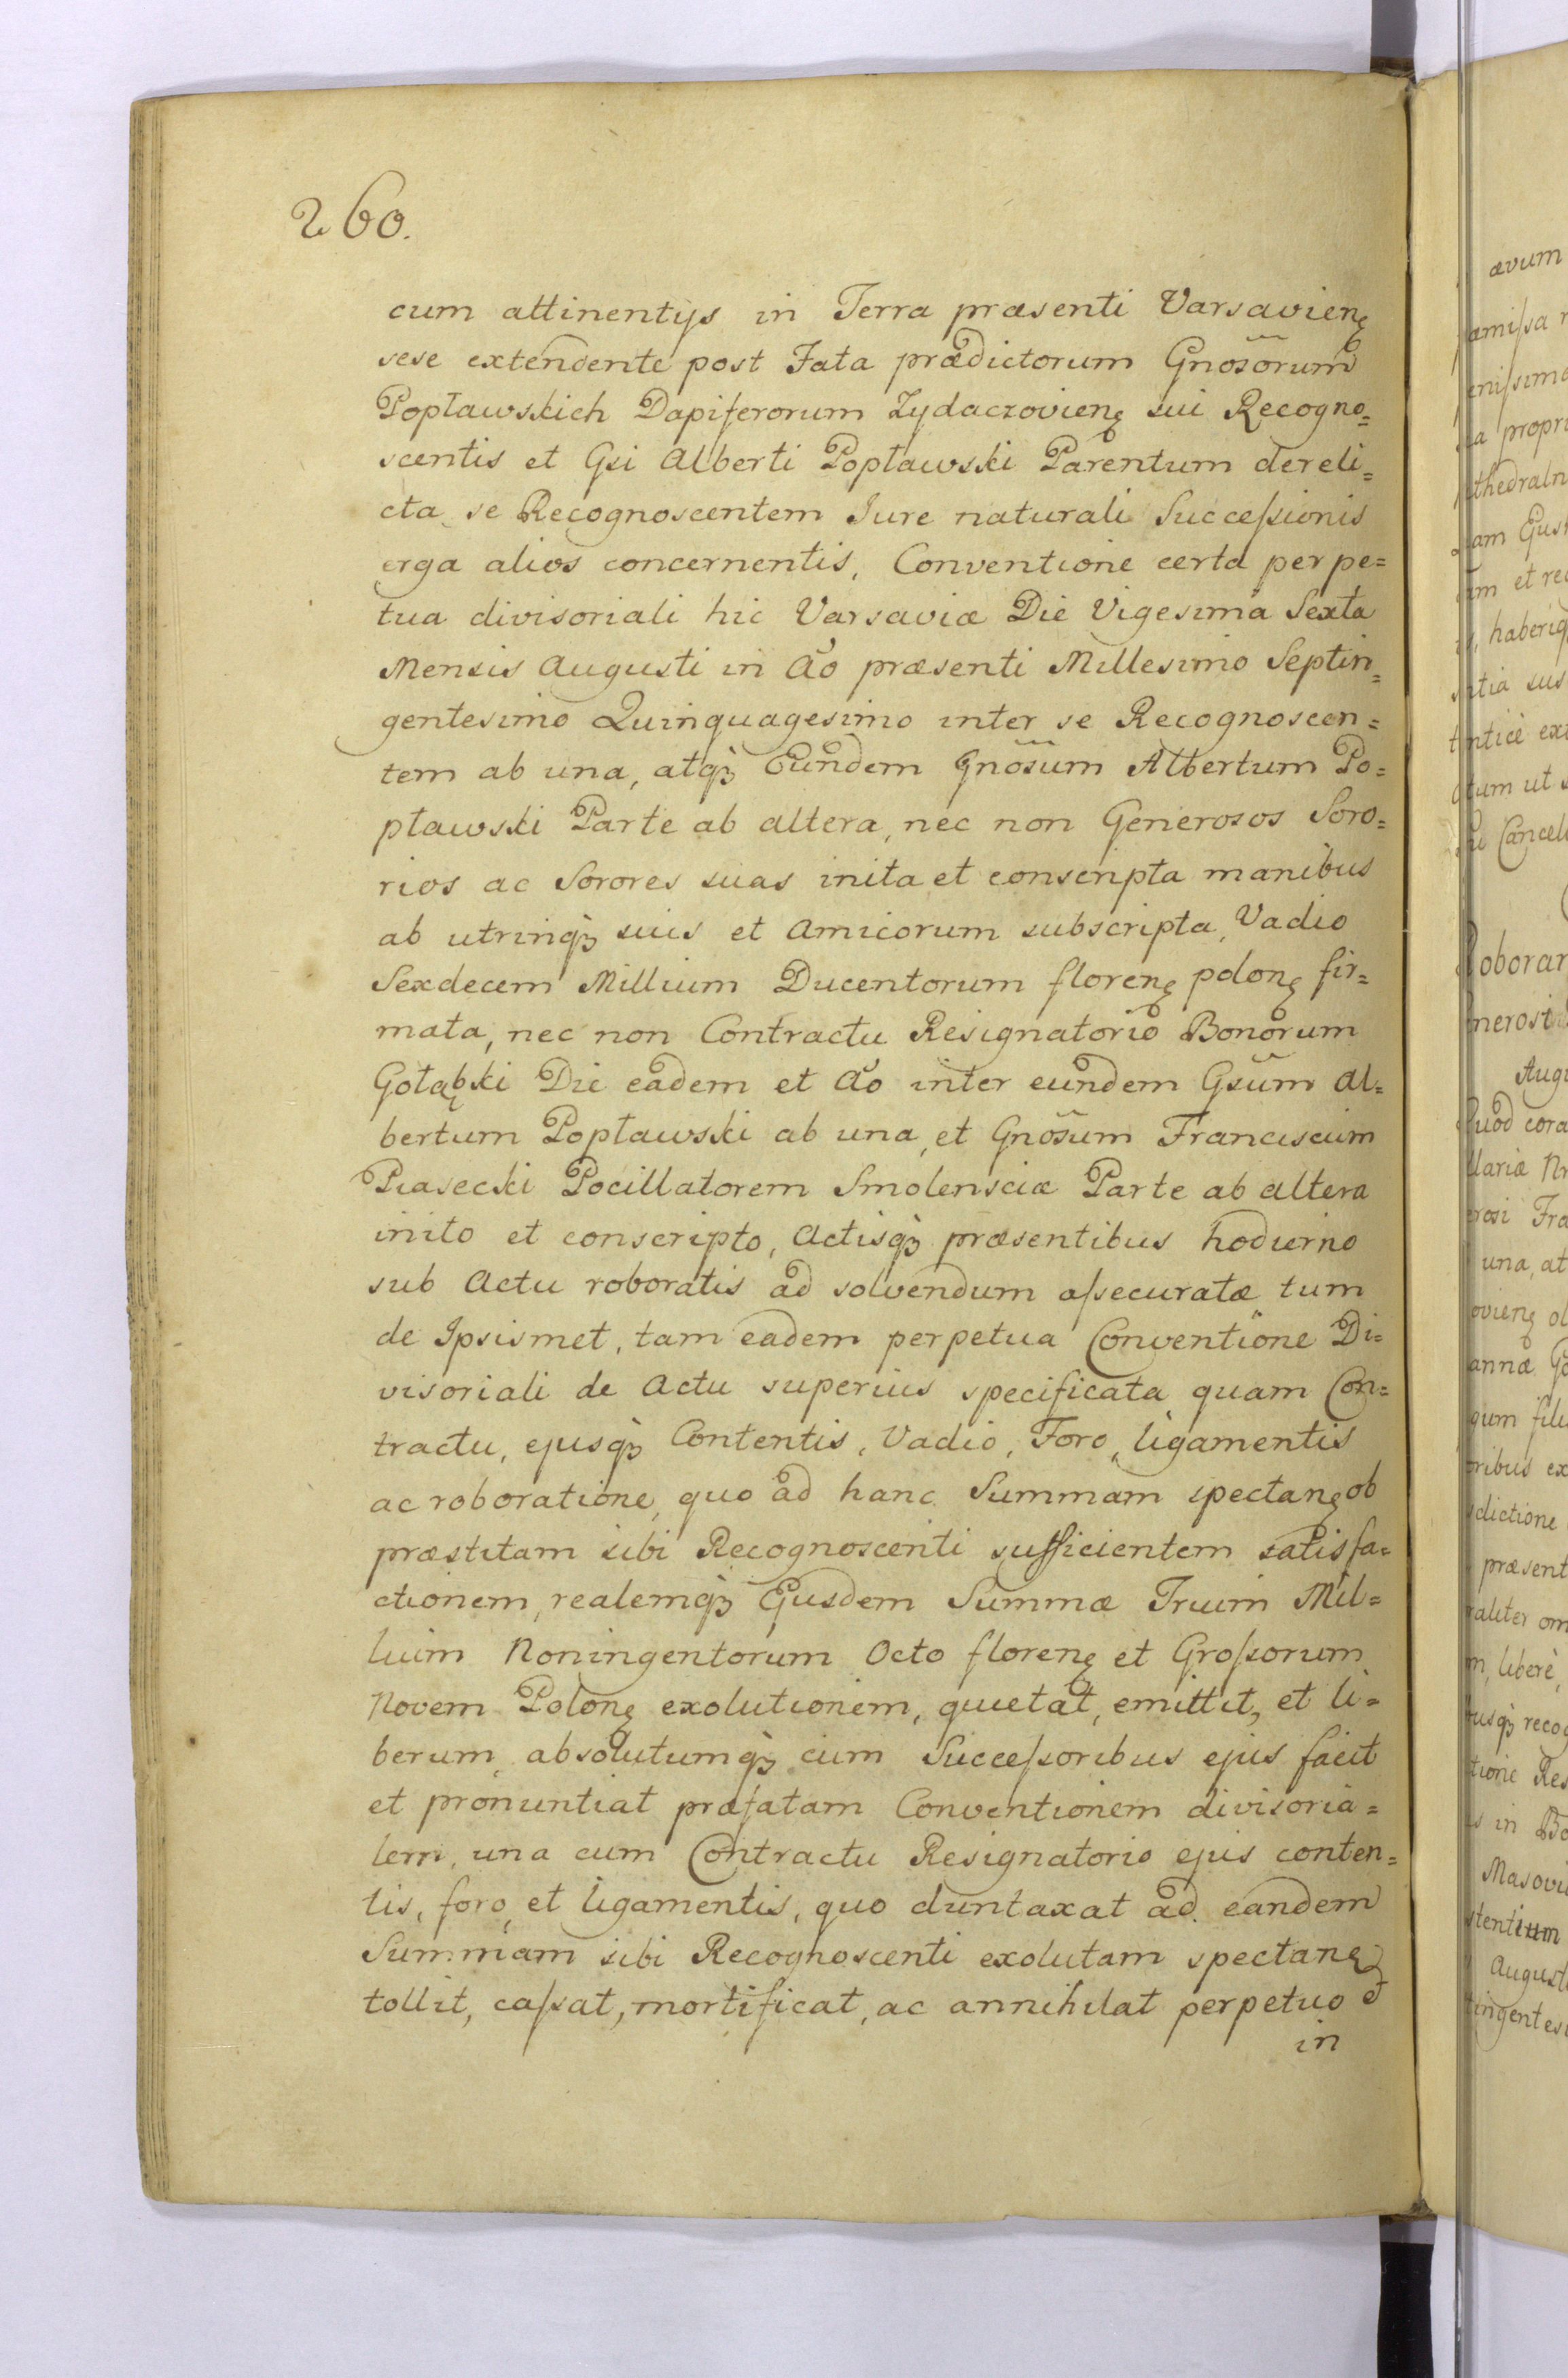 260.
cum attinentijs in Terra præsenti Varsavienȩ
sese extendente post Fata prædictorum Gnosorum
Popławskich Dapiferorum Zydaczovienȩ sui Recogno=
scentis et Gsi Alberti Popławski Parentum dereli=
cta, se Recognoscentem Iure naturali Succeſsionis
erga alios concernentis, Conventione certa perpe=
tua divisoriali hic Varsaviæ Die Vigesima Sexta
Mensis Augusti in Ao præsenti Millesimo Septin=
gentesimo Quinquagesimo inter se Recognoscen=
tem ab una, atqȝ Eundem Gnosum Albertum Po=
pławski Parte ab altera, nec non Generosos Soro=
rios ac Sorores suas inita et conscripta manibus
ab utrinqȝ suis et Amicorum subscripta, Vadio
Sexdecem Millium Ducentorum florenȩ polonȩ fir=
mata, nec non Contractu Resignatorio Bonorum
Gołąbki Die eadem et Ao inter eundem Gsum Al=
bertum Popławski ab una, et Gnosum Franciscum
Piasecki Pocillatorem Smolensciæ Parte ab altera
inito et conscripto, Actisqȝ præsentibus hodierno
sub Actu roboratis ad solvendum aſsecuratæ tum
de Ipsismet, tam eadem perpetua Conventione Di=
visoriali de Actu superius specificata quam Con=
tractu, ejusqȝ Contentis, Vadio, Foro, ligamentis
ac roboratione, quo ad hanc Summam spectanȩ ob
præstitam sibi Recognoscenti sufficientem satisfa=
ctionem, realemqȝ Ejusdem Summæ Trium Mil=
lium Noningentorum Octo florenȩ et Groſsorum
Novem Polonȩ exolutionem, quietat, emittit, et li=
berum, absolutumqȝ cum Succeſsoribus ejus facit
et pronuntiat præfatam Conventionem divisoria=
lem, una cum Contractu Resignatorio ejus conten=
tis, foro, et ligamentis, quo duntaxat ad eandem
Summam sibi Recognoscenti exolutam spectanȩ
tollit, caſsat, mortificat, ac annihilat perpetuo
in